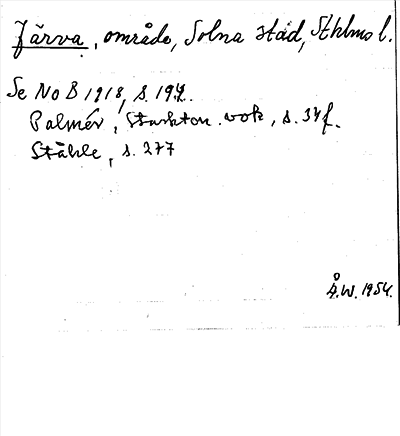 Järva, område, Solna stad, Sthlms l.
Se NoB 1918, s. 197.
Palmér, Starkton. vok., s. 34f.
Ståhle, s. 277
Å.W. 1954.